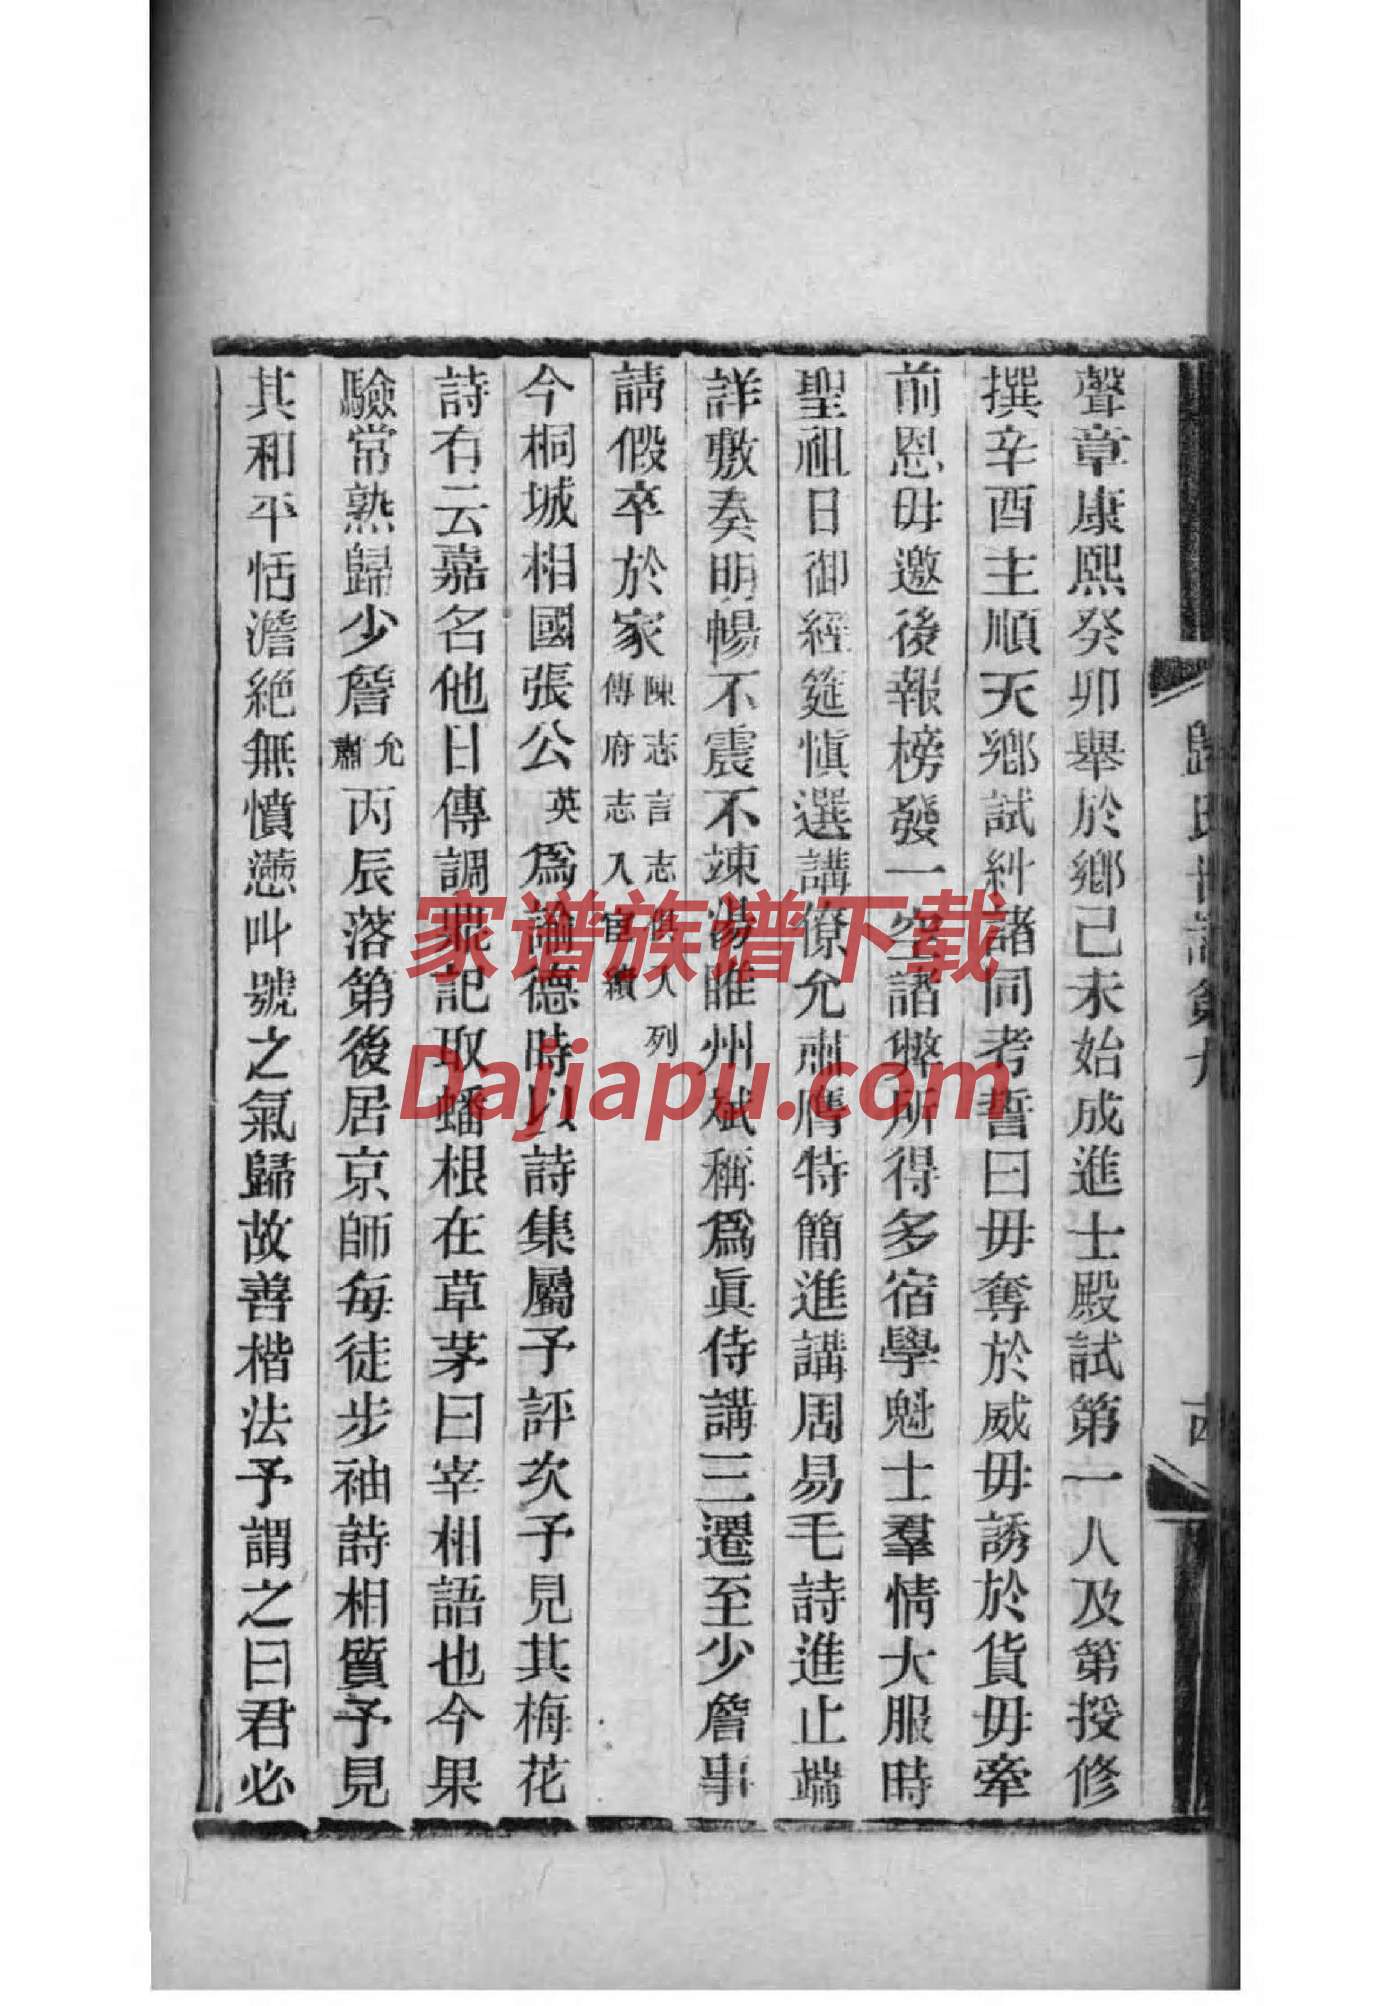 聲章康熙癸卯舉於鄉己未始成進士殿試第一人及第授修
撰辛酉主順天鄉試糾諸同考誓曰毋奪於威毋誘於貨毋牽
前恩毋邀後報榜發一空諸弊所得多宿學魁士羣情大服時
聖祖日御經筵慎選講僚允肅膺特簡進講周易毛詩進止端
詳敷奏明暢不震不竦湯睢州斌稱爲眞侍講三遷至少詹事
請假卒於家陳志言志俱入列
傳府志入宦績
今桐城相國張公英爲諭德時以詩集屬予評次予見其梅花
詩有云嘉名他日傳調鼎記取蟠根在草茅曰宰相語也今果
驗常熟歸少詹允肅丙辰落第後居京師每徒步袖詩相質予見
其和平恬澹絕無憤懣叫號之氣歸故善楷法予謂之曰君必
歸氏世譜第九
家谱族谱下载
Dajiapu.com